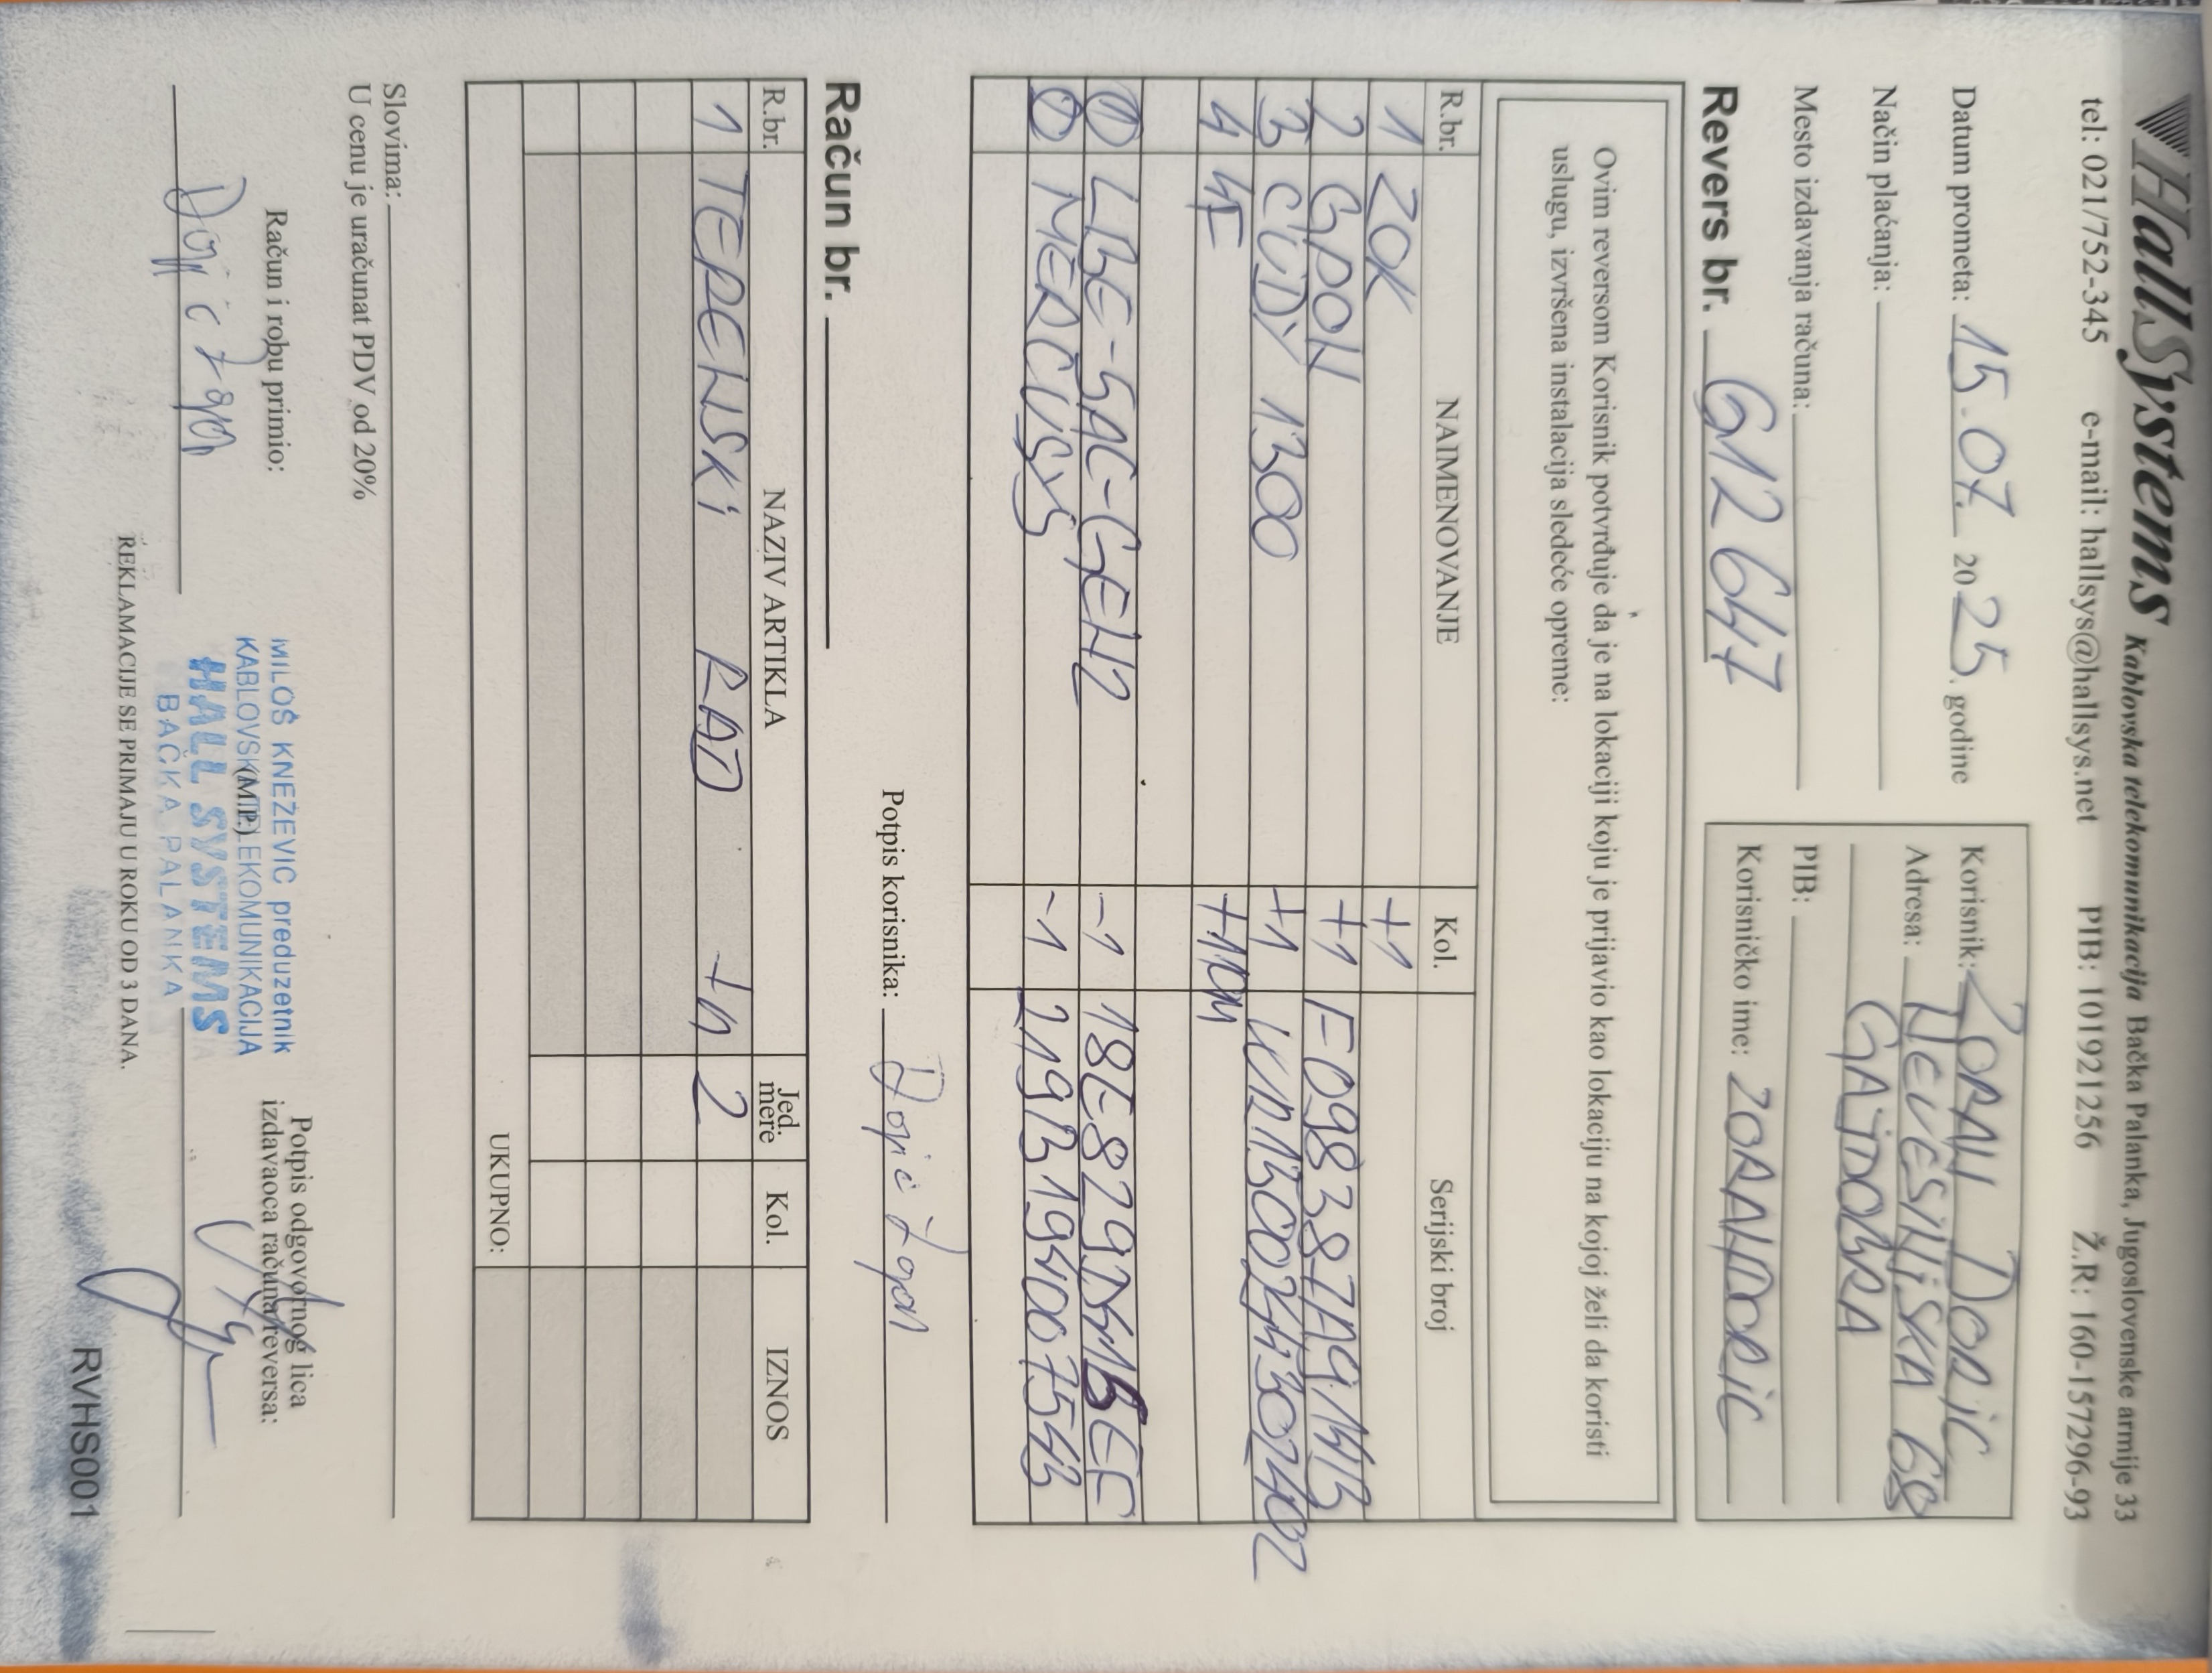 HallSystems Kablovska telekomunikacija Bačka Palanka, Jugoslovenske armije 33
tel: 021/752-345 e-mail: hallsys@hallsys.net PIB: 101921256 Ž.R: 160-157296-93
Datum prometa: 15.07. 2025. godine
Način plaćanja:
Mesto izdavanja računa:
Revers br. G12647
Korisnik: ZORAN DORIC
Adresa: NEVESINJSKA 68
GAJDOBRA
PIB:
Korisničko ime: ZORANDORIC
Ovim reversom Korisnik potvrđuje da je na lokaciji koju je prijavio kao lokaciju na kojoj želi da koristi
uslugu, izvršena instalacija sledeće opreme:
R.br. NAIMENOVANJE Kol. Serijski broj
1 ZOK +1
2 GPON +1
3 CUDY 1300 +1
4 4F
1 LBE-5AC-GEN2 -1
2 MERCUSYS -1 219B194007543
Potpis korisnika:
Račun br.
R.br. NAZIV ARTIKLA Jed. mere Kol. IZNOS
1 TERENSKI RAD +h 2
UKUPNO:
Slovima:
U cenu je uračunat PDV od 20%
Račun i robu primio:
MILOŠ KNEŽEVIC preduzetnik
KABLOVSKA TELEKOMUNIKACIJA
(M.P.)
HALL SYSTEMS
BAČKA PALANKA
Potpis odgovornog lica
izdavaoca računa/reversa:
REKLAMACIJE SE PRIMAJU U ROKU OD 3 DANA.
RVHS001